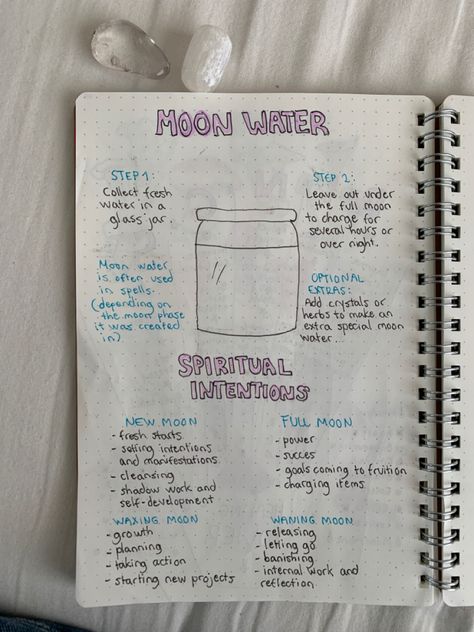 MOON WATER
STEP 1:
Collect fresh
water in a
glass jar.
STEP 2:
Leave out under
the full moon
to charge for
several hours or
over night.
Moon water
is often used
in spells.
(depending on
the moon phase
it was created
in).
OPTIONAL
EXTRAS:
Add crystals or
herbs to make an
extra special moon
water.
SPIRITUAL
INTENTIONS
NEW MOON
- fresh starts
- setting intentions
and manifestations
- cleansing
- shadow work and
self-development
FULL MOON
- power
- succes
- goals coming to fruition
- charging items
WAXING MOON
- growth
- planning
- taking action
- starting new projects
WANING MOON
- releasing
- letting go
- banishing
- internal work and
reflection